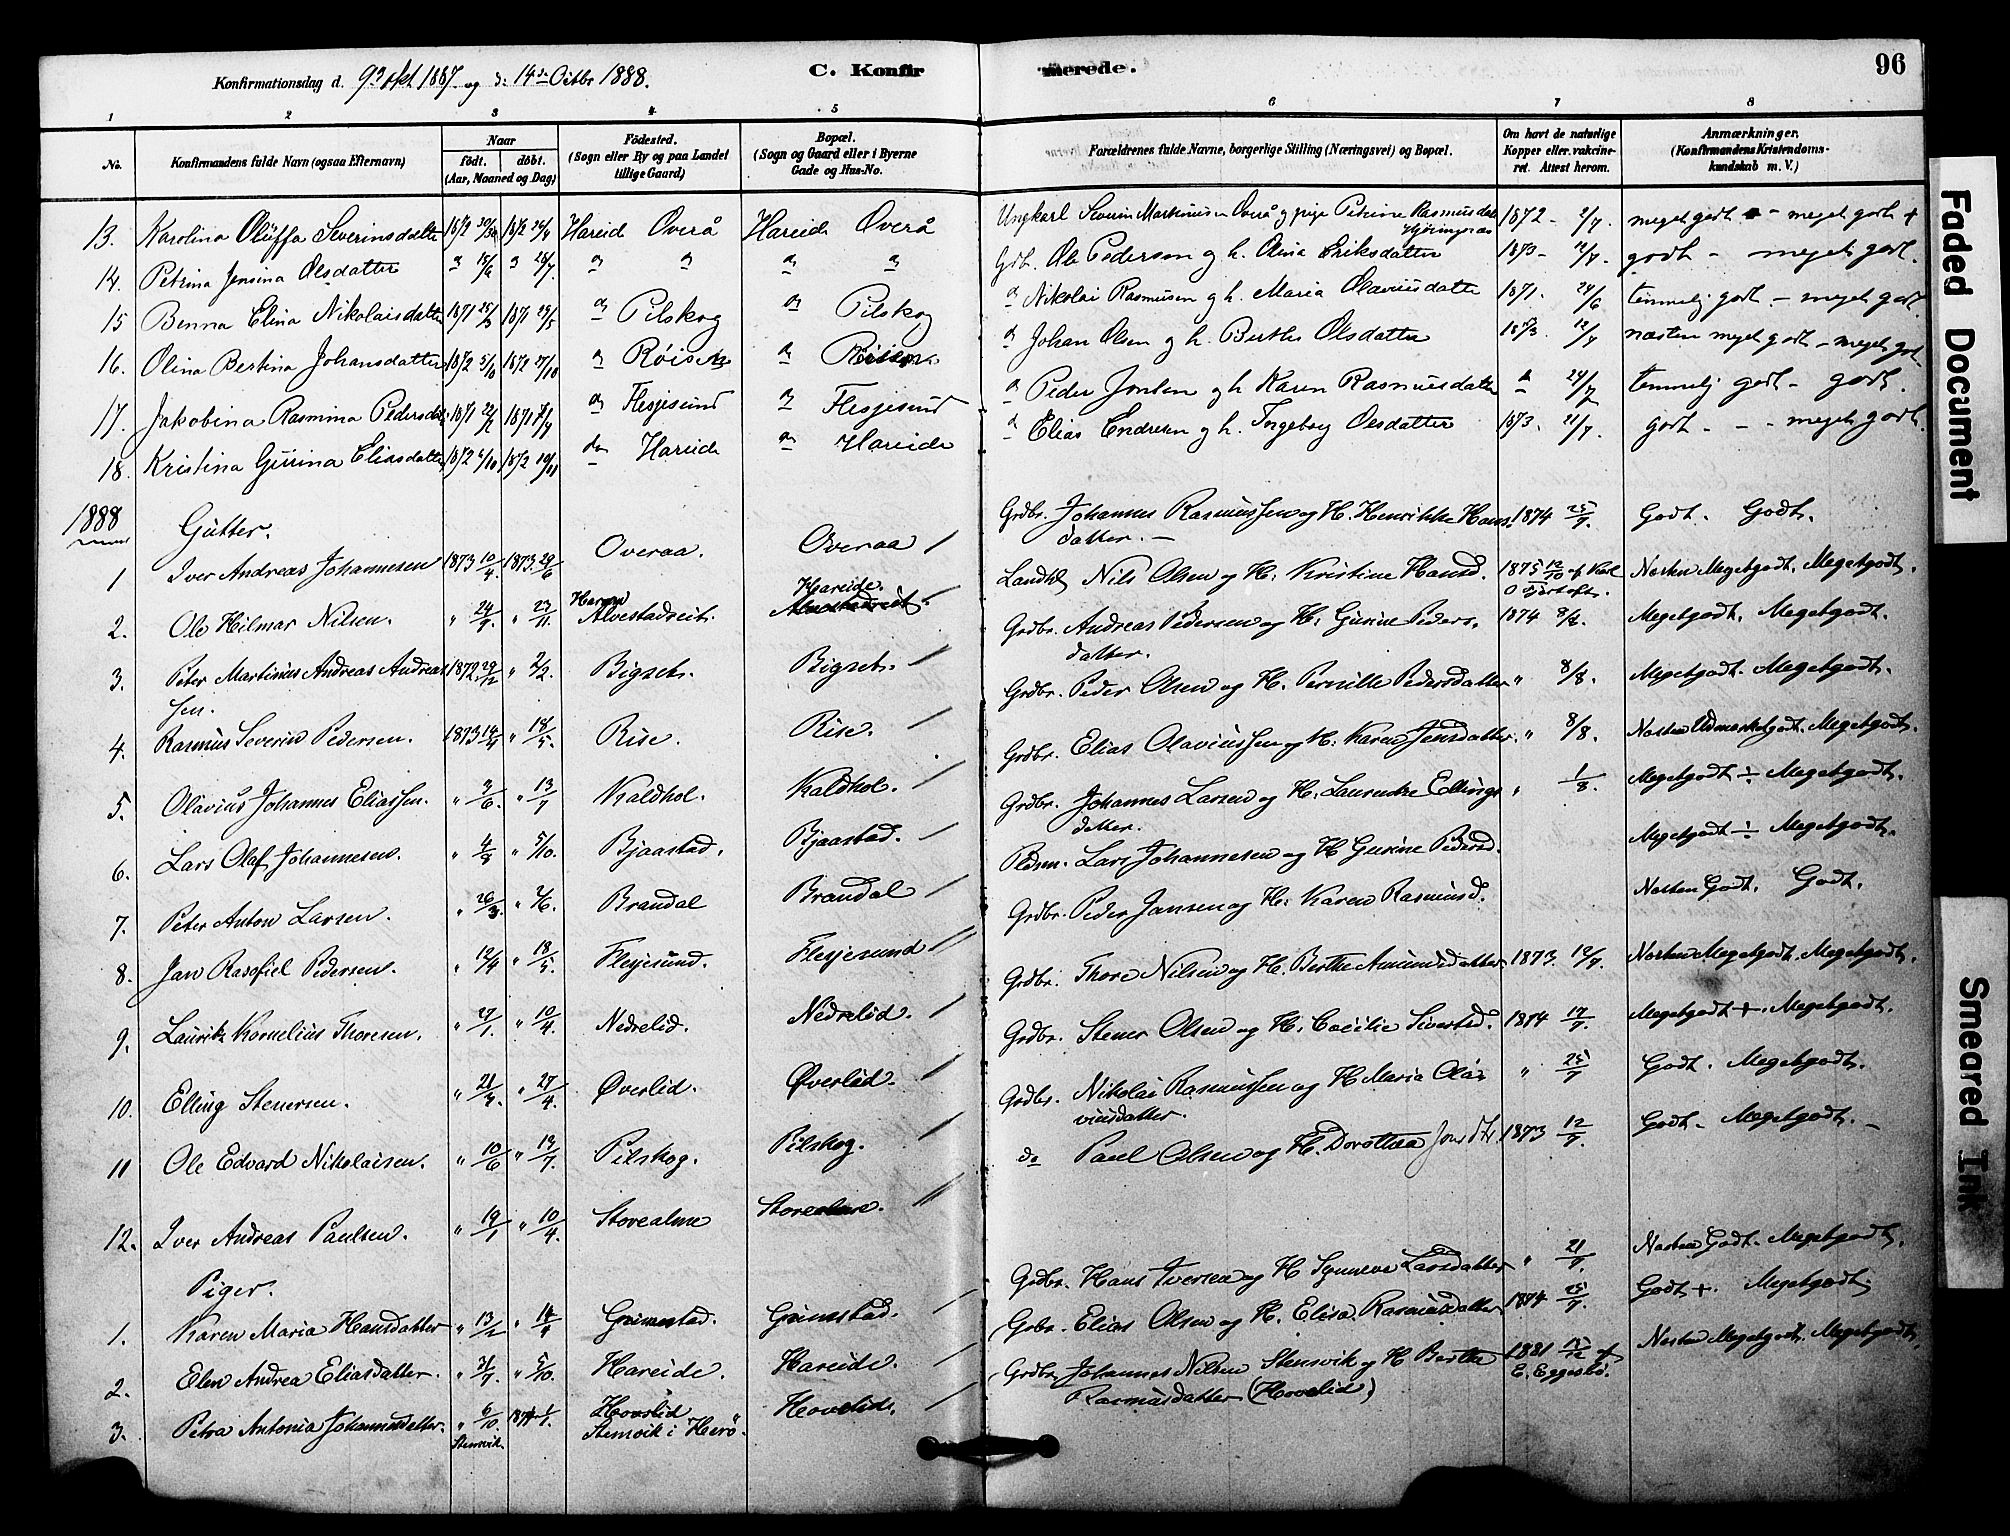 Konfirmationsdag d. 9de Okt 1887. og d: 14de Octbr 1888.
C. Konfirmerede.
96
1 2 3 4 5 6 7 8
No.
Konfirmandens fulde Navn (ogsaa Efternavn)
Naar
födt. döbt.
(Aar, Maaned og Dag)
Födested.
(Sogn eller By og paa Landet
tillige Gaard)
Bopæl.
(Sogn og Gaard eller i Byerne
Gade og Hus-No.
Forældrenes fulde Navne, borgerlige Stilling (Næringsvei) og Bopæl.
Om havt de naturlige
Kopper eller vakcineret. Attest herom.
Anmærkninger.
(Konfirmandens Kristendomskundskab m. V.)
13. Karolina Oluffa Severinsdatter 1872 1872 Hareid Överå Hareid Överå Ungkarl Severin Martinusen Överå og pige Petrine Rasmusdat 1872 - 2/7. meget godt - meget godt +
14. Petrina Jensina Olsdatter Gdb. Ole Pedersen og h. Olina Eriksdatter 1873 - 12/7. godt - meget godt.
15 Benna Elina Nikolaisdatter 1871 1871 Pilskog Pilskog Nikolai Rasmusen og h. Maria Olaviusdatter 1871. 24/6 temmelig godt - meget godt
16. Olina Bertina Johansdatter 1872 5/10 1872 27/10 Röisen Johan Olsen og h. Berthe Olsdatter 1873. 12/7 næsten meget godt - meget godt
17. Jakobina Rasmina Pedersdat. 1871 1871 Flesjesund Flesjesund Peder Jonsen og h. Karen Rasmusdatter 24/7 temmelig godt - godt.
18. Kristina Gurina Eliasdatter 1872 6/10 1872 19/11 do Hareide Hareide Elias Endresen og h. Ingeborg Olsdatter 1873. 21/7. godt - - meget godt.
1888 Gutter.
1 Iver Andreas Johannesen 1873 10/4. 1873. 29/6 Overaa. Overaa Grdbr. Johannes Rasmussen og H. Henrikke Hansdatter. - 1874 25/7. Godt. Godt.
2. Ole Hilmar Nilsen. " 24/9. " 23/11. Alvestadreit. Hareide. Landhd Nils Olsen og H. Kristine Hansd. 1875 12/10 af Næsten Megetgodt. Megetgodt.
3. Peter Martinus Andreas Andreassen. 1872 29/12 " 2/2. Bigset. Bigset. Grdbr. Andreas Pedersen og H. Gurine Pedersdatter. 1874 8/8. Megetgodt. Megetgodt.
4. Rasmus Severin Pedersen. 1873 14/4 " 18/5. Rise. Rise. Grdbr. Peder Olsen og H. Pernille Pedersdatter " 8/8. Megetgodt. Megetgodt.
5. Olavius Johannes Eliassen. " 3/6. " 13/7 Kaldhol. Kaldhol. Grdbr. Elias Olaviussen og H. Karen Jensdatter. " 8/8. Næsten Udmærketgodt. Megetgodt.
6. Lars Olaf Johannesen. " 4/9 " 5/10. Bjaastad. Bjaastad. Grdbr. Johannes Larsen og H. Laurentse Ellingsdatter. " 1/8. Megetgodt ÷ Megetgodt.
7. Peter Anton Larsen. " 26/3. " 2/6. Brandal Brandal Pldsm. Lars Johannesen og H Gurine Pedersd. Megetgodt ÷ Megetgodt.
8. Jan Rasofiel Pedersen. " 12/4 " 18/5. Flesjesund. Flesjesund Grdbr. Peder Jansen og H. Karen Rasmusd. Næsten Godt. Godt.
9. Lauritz Kornelius Thoresen. " 27/1. " 10/4. Nedrelid. Nedrelid. Grdbr. Thore Nilsen og H. Berthe Amundsdatter 1873. 12/7. Næsten Megetgodt. Megetgodt.
10. Elling Stenersen. " 21/4. " 27/4. Øverlid. Øverlid. Grdbr. Stener Olsen og H. Cecilie Sivertsd. 1874 17/7. Megetgodt +. Megetgodt.
11 Ole Edvard Nikolaisen. " 10/6 " 13/7. Pilskog. Pilskog. Grdbr. Nikolai Rasmussen og H Maria Olaviusdatter. " 25/7 Godt. Megetgodt.
12. Iver Andreas Paulsen. " 19/1 " 10/4. Storealme Storealme. do Paul Olsen og H. Dorothea Jonsdtr 1873 12/7. Godt. Megetgodt. -
Piger.
1. Karen Maria Hansdatter " 13/2 " 14/4 Grimestad. Grimstad. Grdbr. Hans Iversen og H Synneve Larsdatter " 21/7. Næsten Godt. Megetgodt.
2. Elen Andrea Eliasdatter. " 31/7. " 5/10. Hareide. Hareide. Gdbr. Elias Olsen og H. Elisa Rasmusdatter 1874 25/7. Godt +. Megetgodt.
3. Petra Antonia Johannesdatter. " 6/10. Stensvik. 1874 1/1. Hovelid Stensvik i Herö. Hovelid. Grdbr. Johannes Nilsen Stensvik og H Berthe Rasmusdatter (Hovelid) 1881 af E. Eggesbö. Næsten Megetgodt. Megetgodt.
Faded Document
Smeared Ink